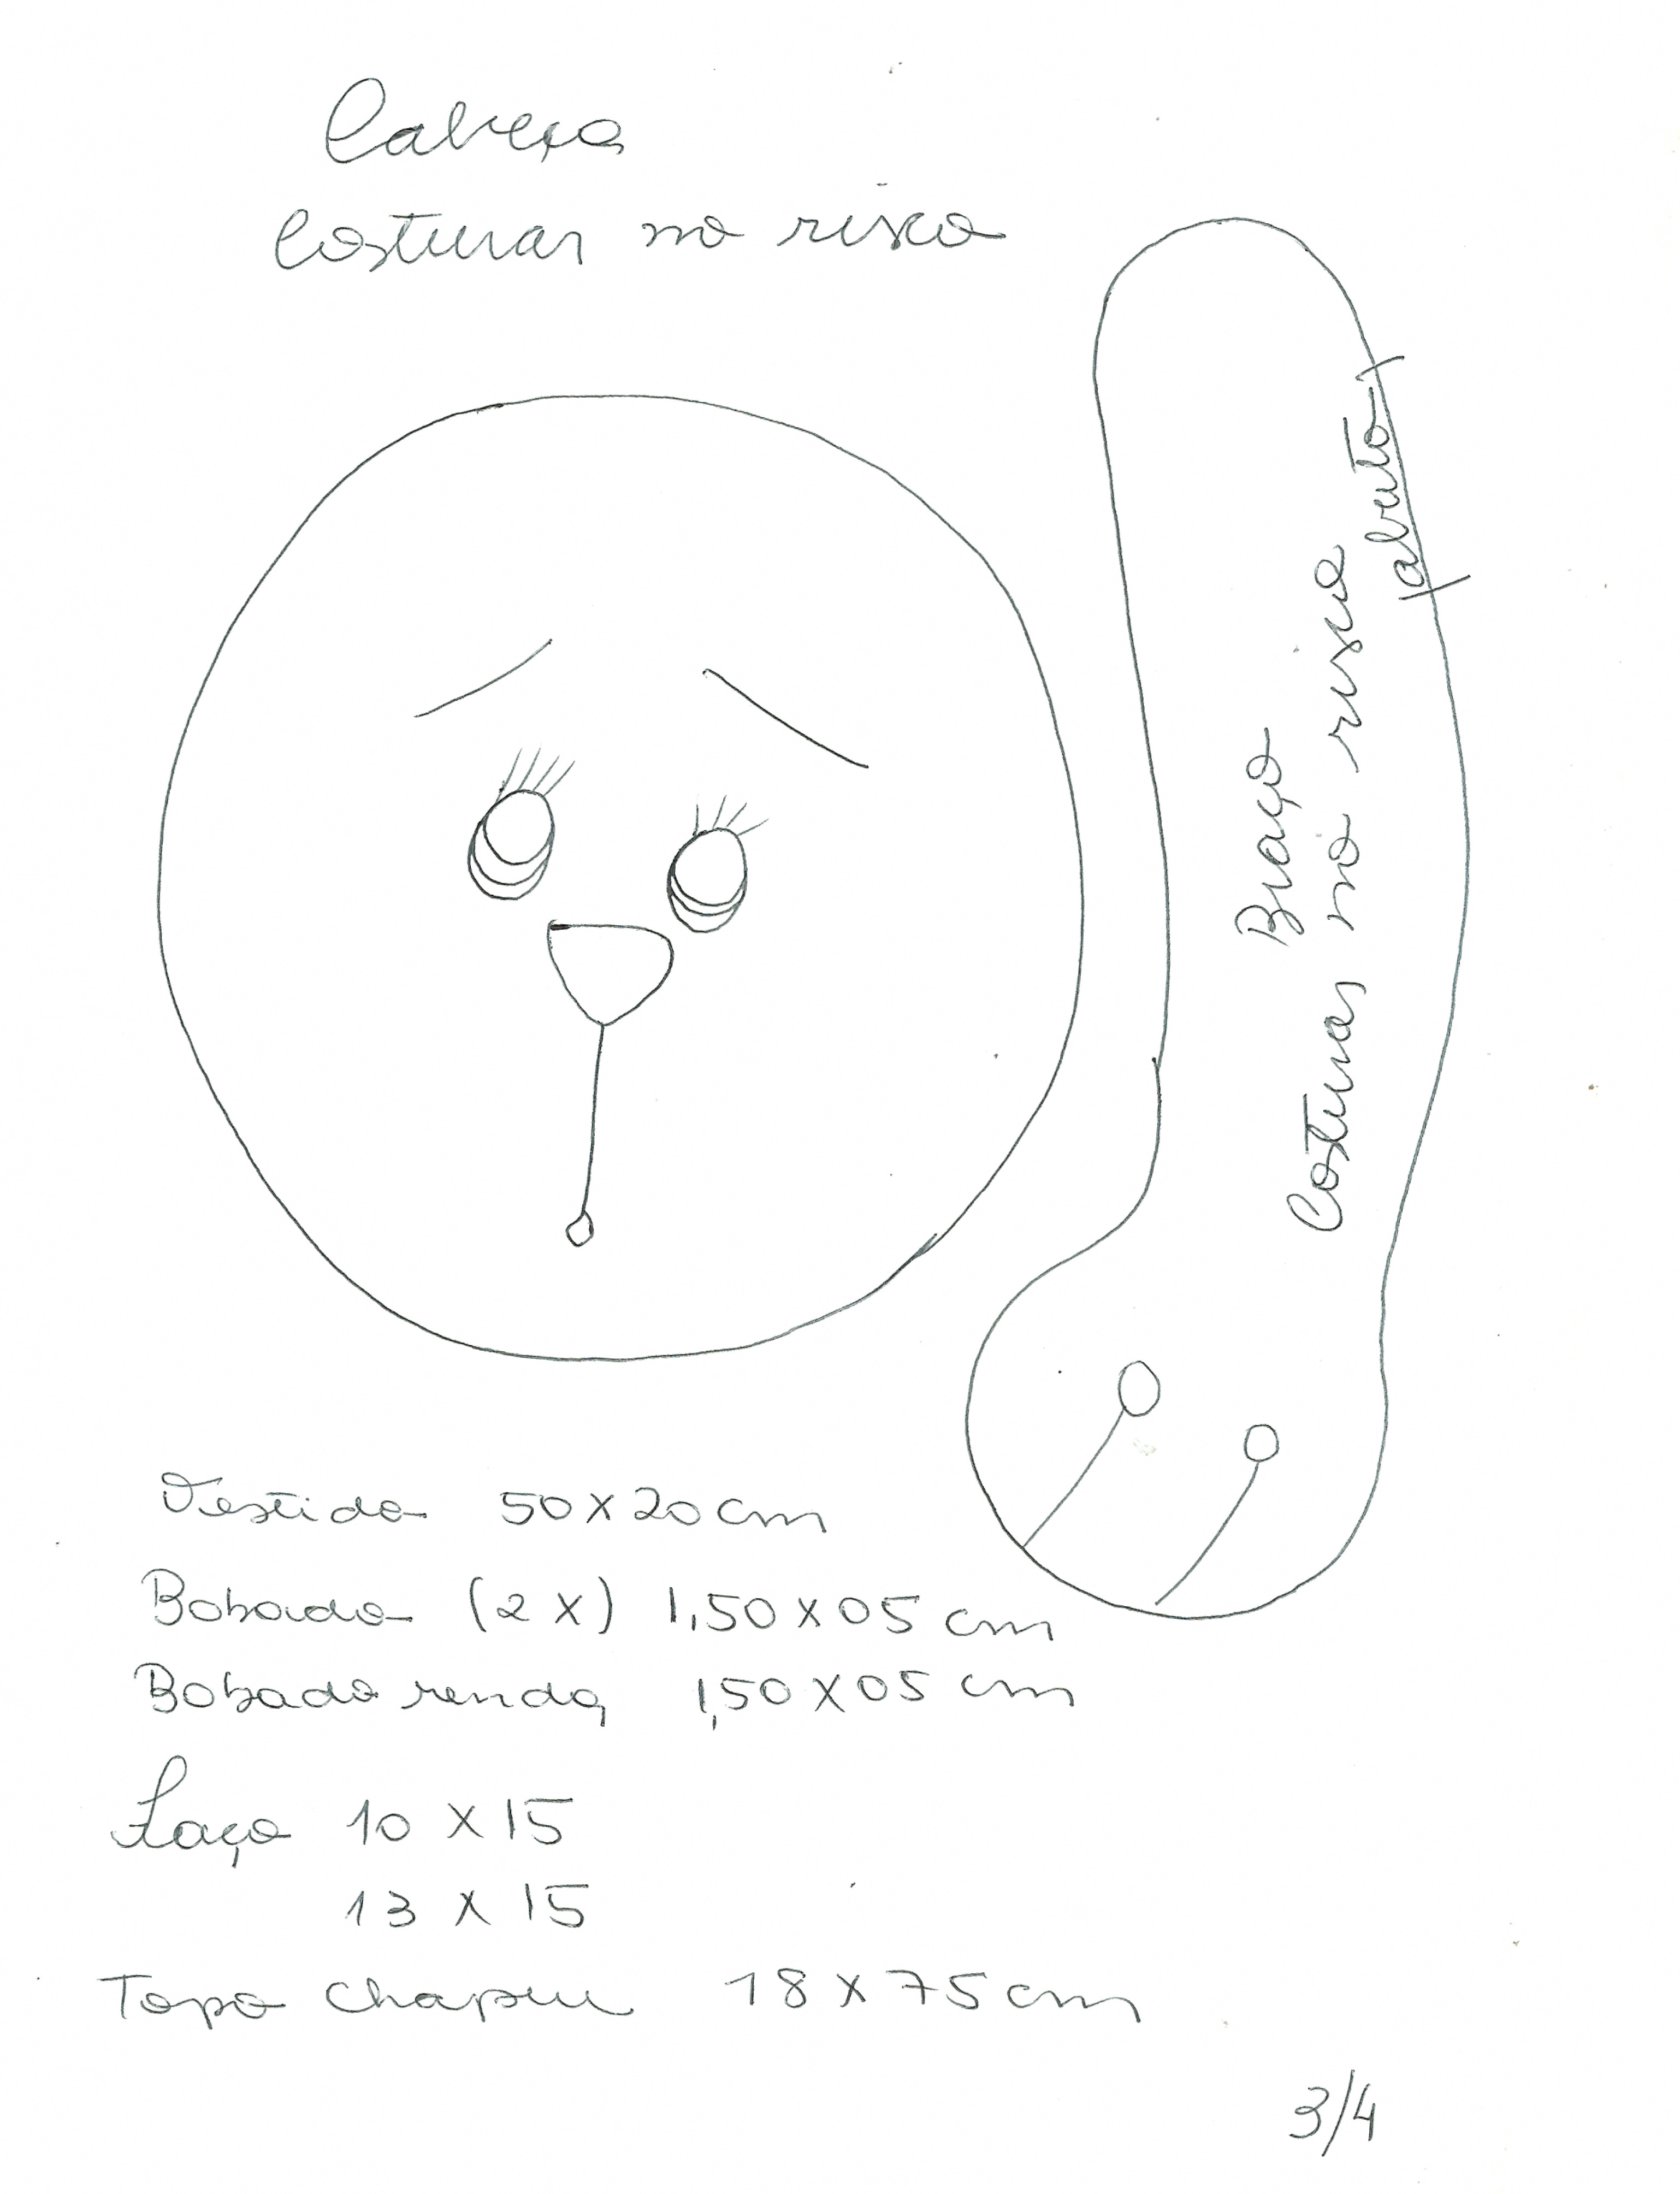 Cabeça
Costurar no risco
Braço
Costurar no risco
aberto
Vestido 50x20cm
Babado (2x) 1,50x05 cm
Babado renda 1,50x05 cm
Laço 10x15
13x15
Topo chapeu 18x75cm
3/4